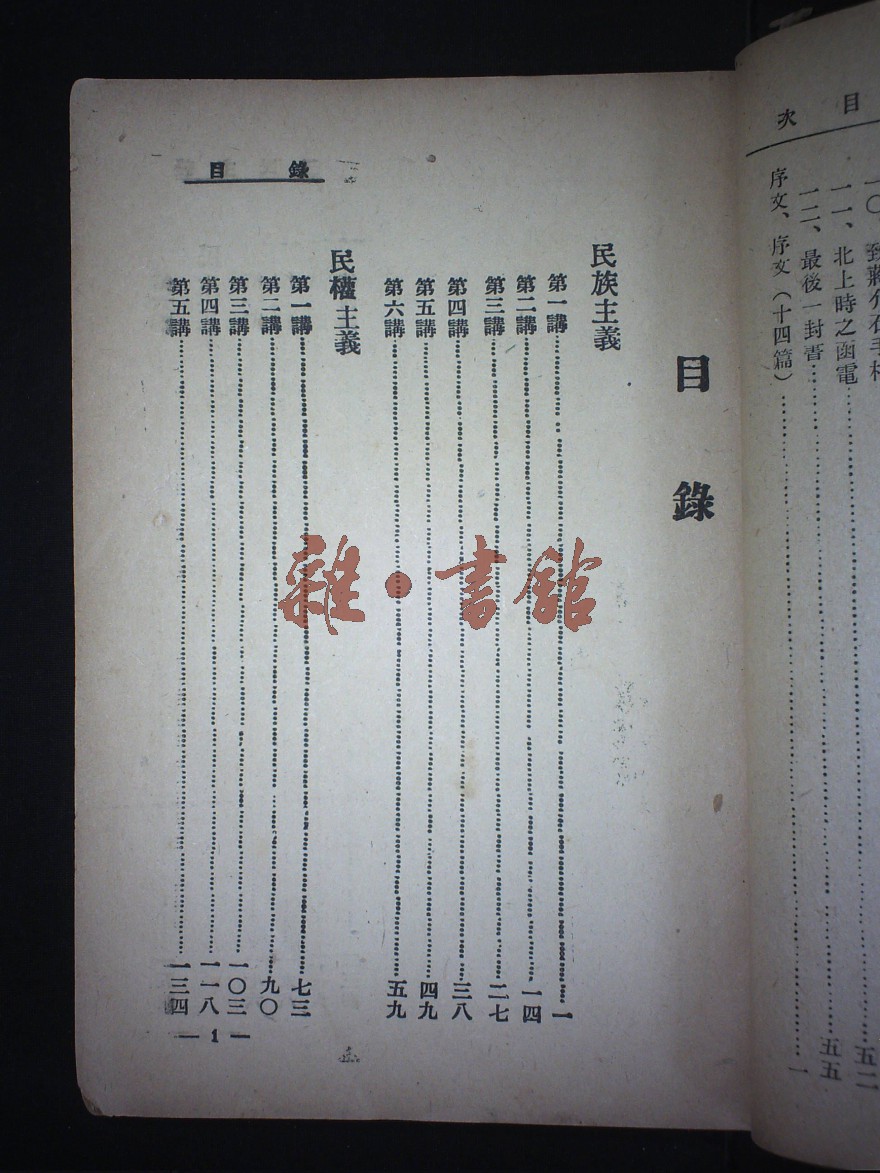 次目
一〇、致蔣介石手札……五二
一一、北上時之函電……五五
一二、最後一封書……
序文、序文（十四篇）……一
目錄
目錄
民族主義
第一講……一
第二講……一四
第三講……二七
第四講……三八
第五講……四九
第六講……五九
民權主義
第一講……七三
第二講……九〇
第三講……一〇三
第四講……一一八
第五講……一三四
— 1 —
雜·書館